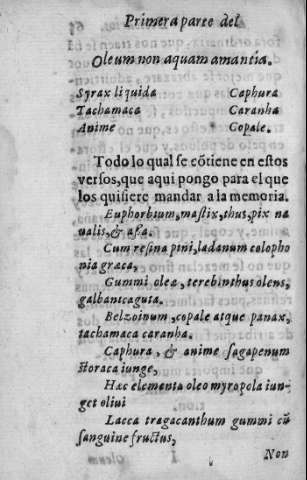 Primera parte del
Oleum non aquam amantia.
Syrax liquida Caphura
Tachamaca Caranha
Anime Copale.
Todo lo qual se cõtiene en estos
versos, que aqui pongo para el que
los quisiere mandar a la memoria.
Euphorbium, mastix, thus, pix na
ualis, & assa.
Cum resina pini, ladanum colopho
nia graca,
Gummi oleæ, terebinthus olens,
galbantcaguta.
Belzoinum, copale atque panax,
tachamaca caranha.
Caphura, & anime sagapenum
storaca iunge,
Hæc elementa oleo myropola iun-
get oliui
Lacca tragacanthum gummi cũ
sanguine fructus,
Non